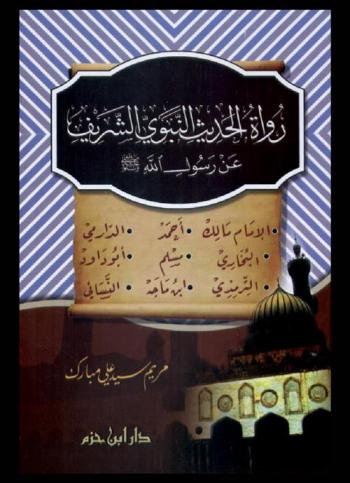 رُوَاةُ الْحَدِيثِ النَّبَوِيِّ الشَّرِيفِ
عَنْ رَسُولِ اللَّهِ ﷺ
• الإمام مالك • أحمد • الدارمي
• البخاري • مسلم • أبو داود
• الترمذي • ابن ماجه • النسائي
مريم سيد علي مبارك
دار ابن حزم